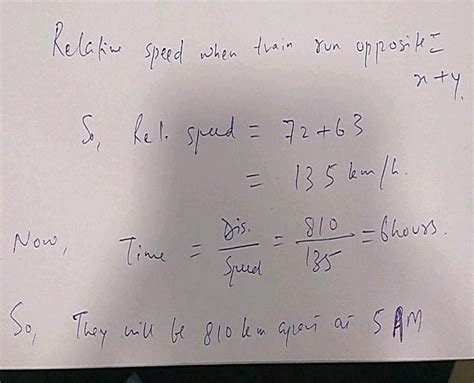 Relative speed when train run opposite =
x+y.
So, Rel. speed = 72+63
= 135 km/h.
Now, Time = Dis./Speed = 810/135 = 6 hours.
So, They will be 810 km apart at 5 AM